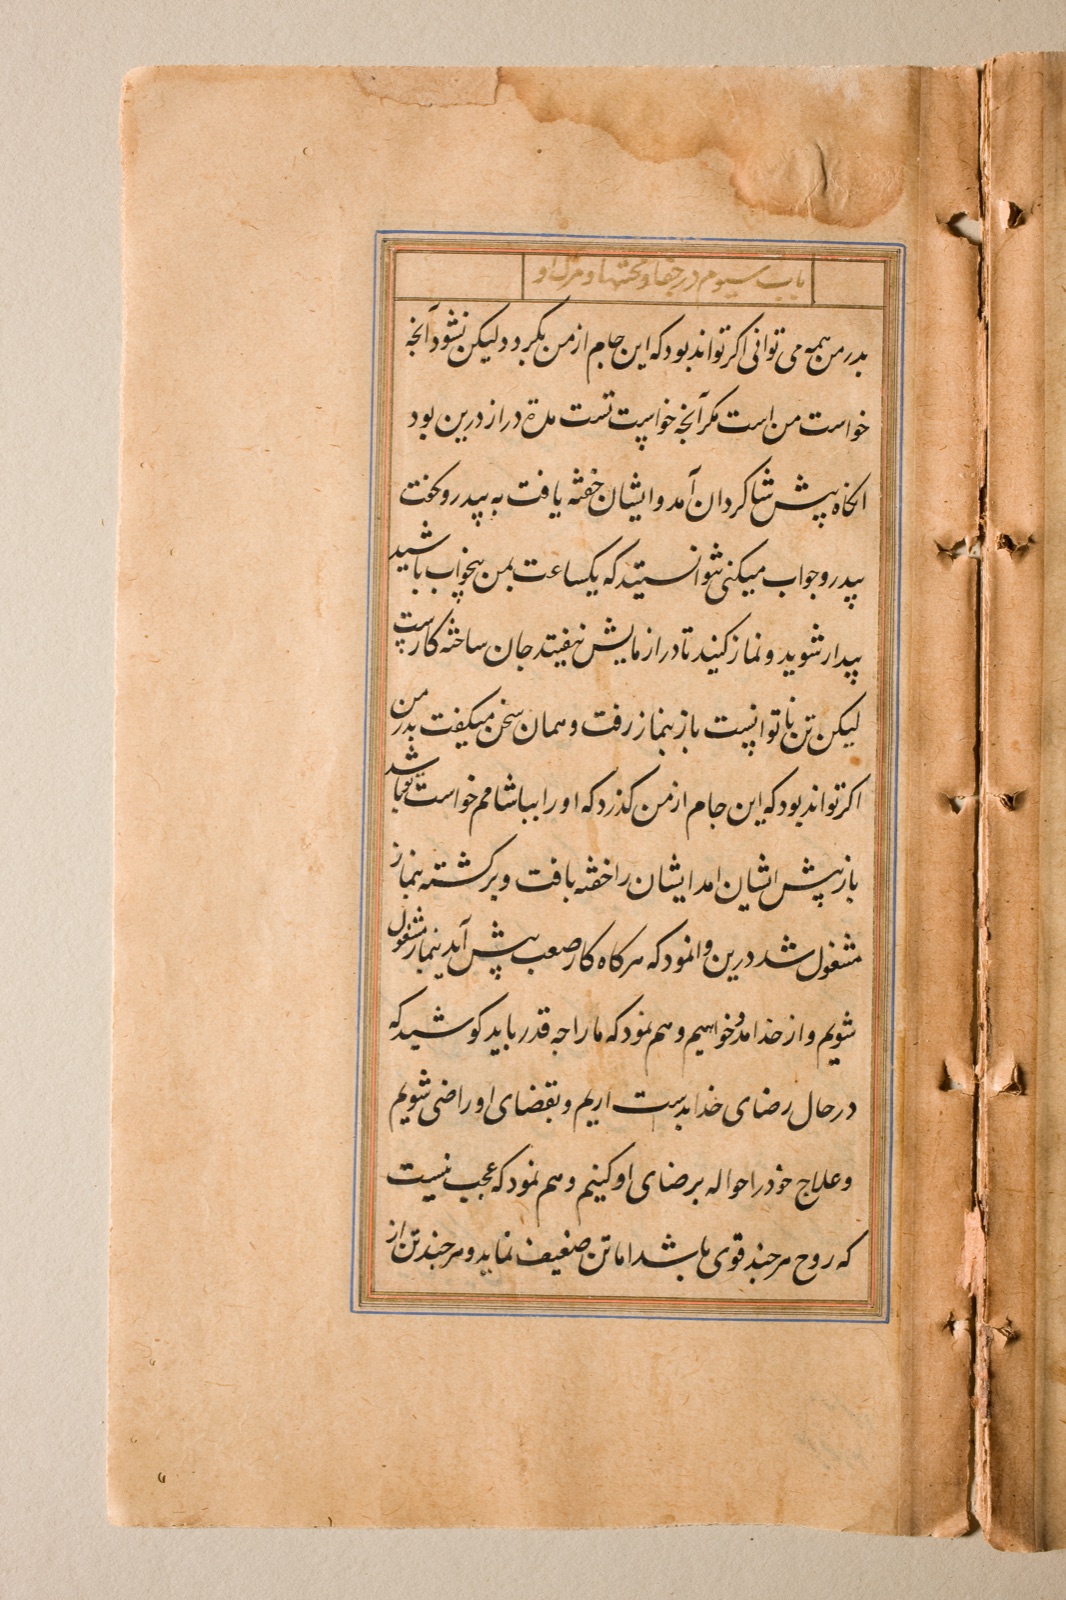 باب سیوم در جفا و محنتها و مرک او
پدر من همه می توانی اکر تواند بود که این جام از من بکرد دلیکن نشود آنچه
خواست من است مکر آنچه خواست تست مدة دراز درین بود
انکاه پیش شاکردان آمد و ایشان خفته یافت به پیدرو کفت
پیدرو جواب میکنی نتوانستید که یکساعت بمن بیخواب باشید
بیدار شوید و نماز کنید تا در ازمایش نیفیتد جان ساخته کارست
لیکن تن ناتوانست باز بنماز رفت و همان سخن میکفت پدر من
اکر تواند بود که این جام از من کذرد که او را بیاشامم خواست تو باشد
باز پیش ایشان امد ایشان را خفته یافت و برکشته بنماز
مشغول شد درین وانمود که هرکاه کار صعب پیش آید بنماز مشغول
شویم و از خدا مدد خواهیم و هم نمود که ما را چه قدر باید کوشید که
در حال رضای خدا بدست اریم و بقضای او راضی شویم
و علاج خود را حواله برضای او کنیم و هم نمود که عجب نیست
که روح هرچند قوی باشد اما تن ضعیف نماید و هرچند تن از